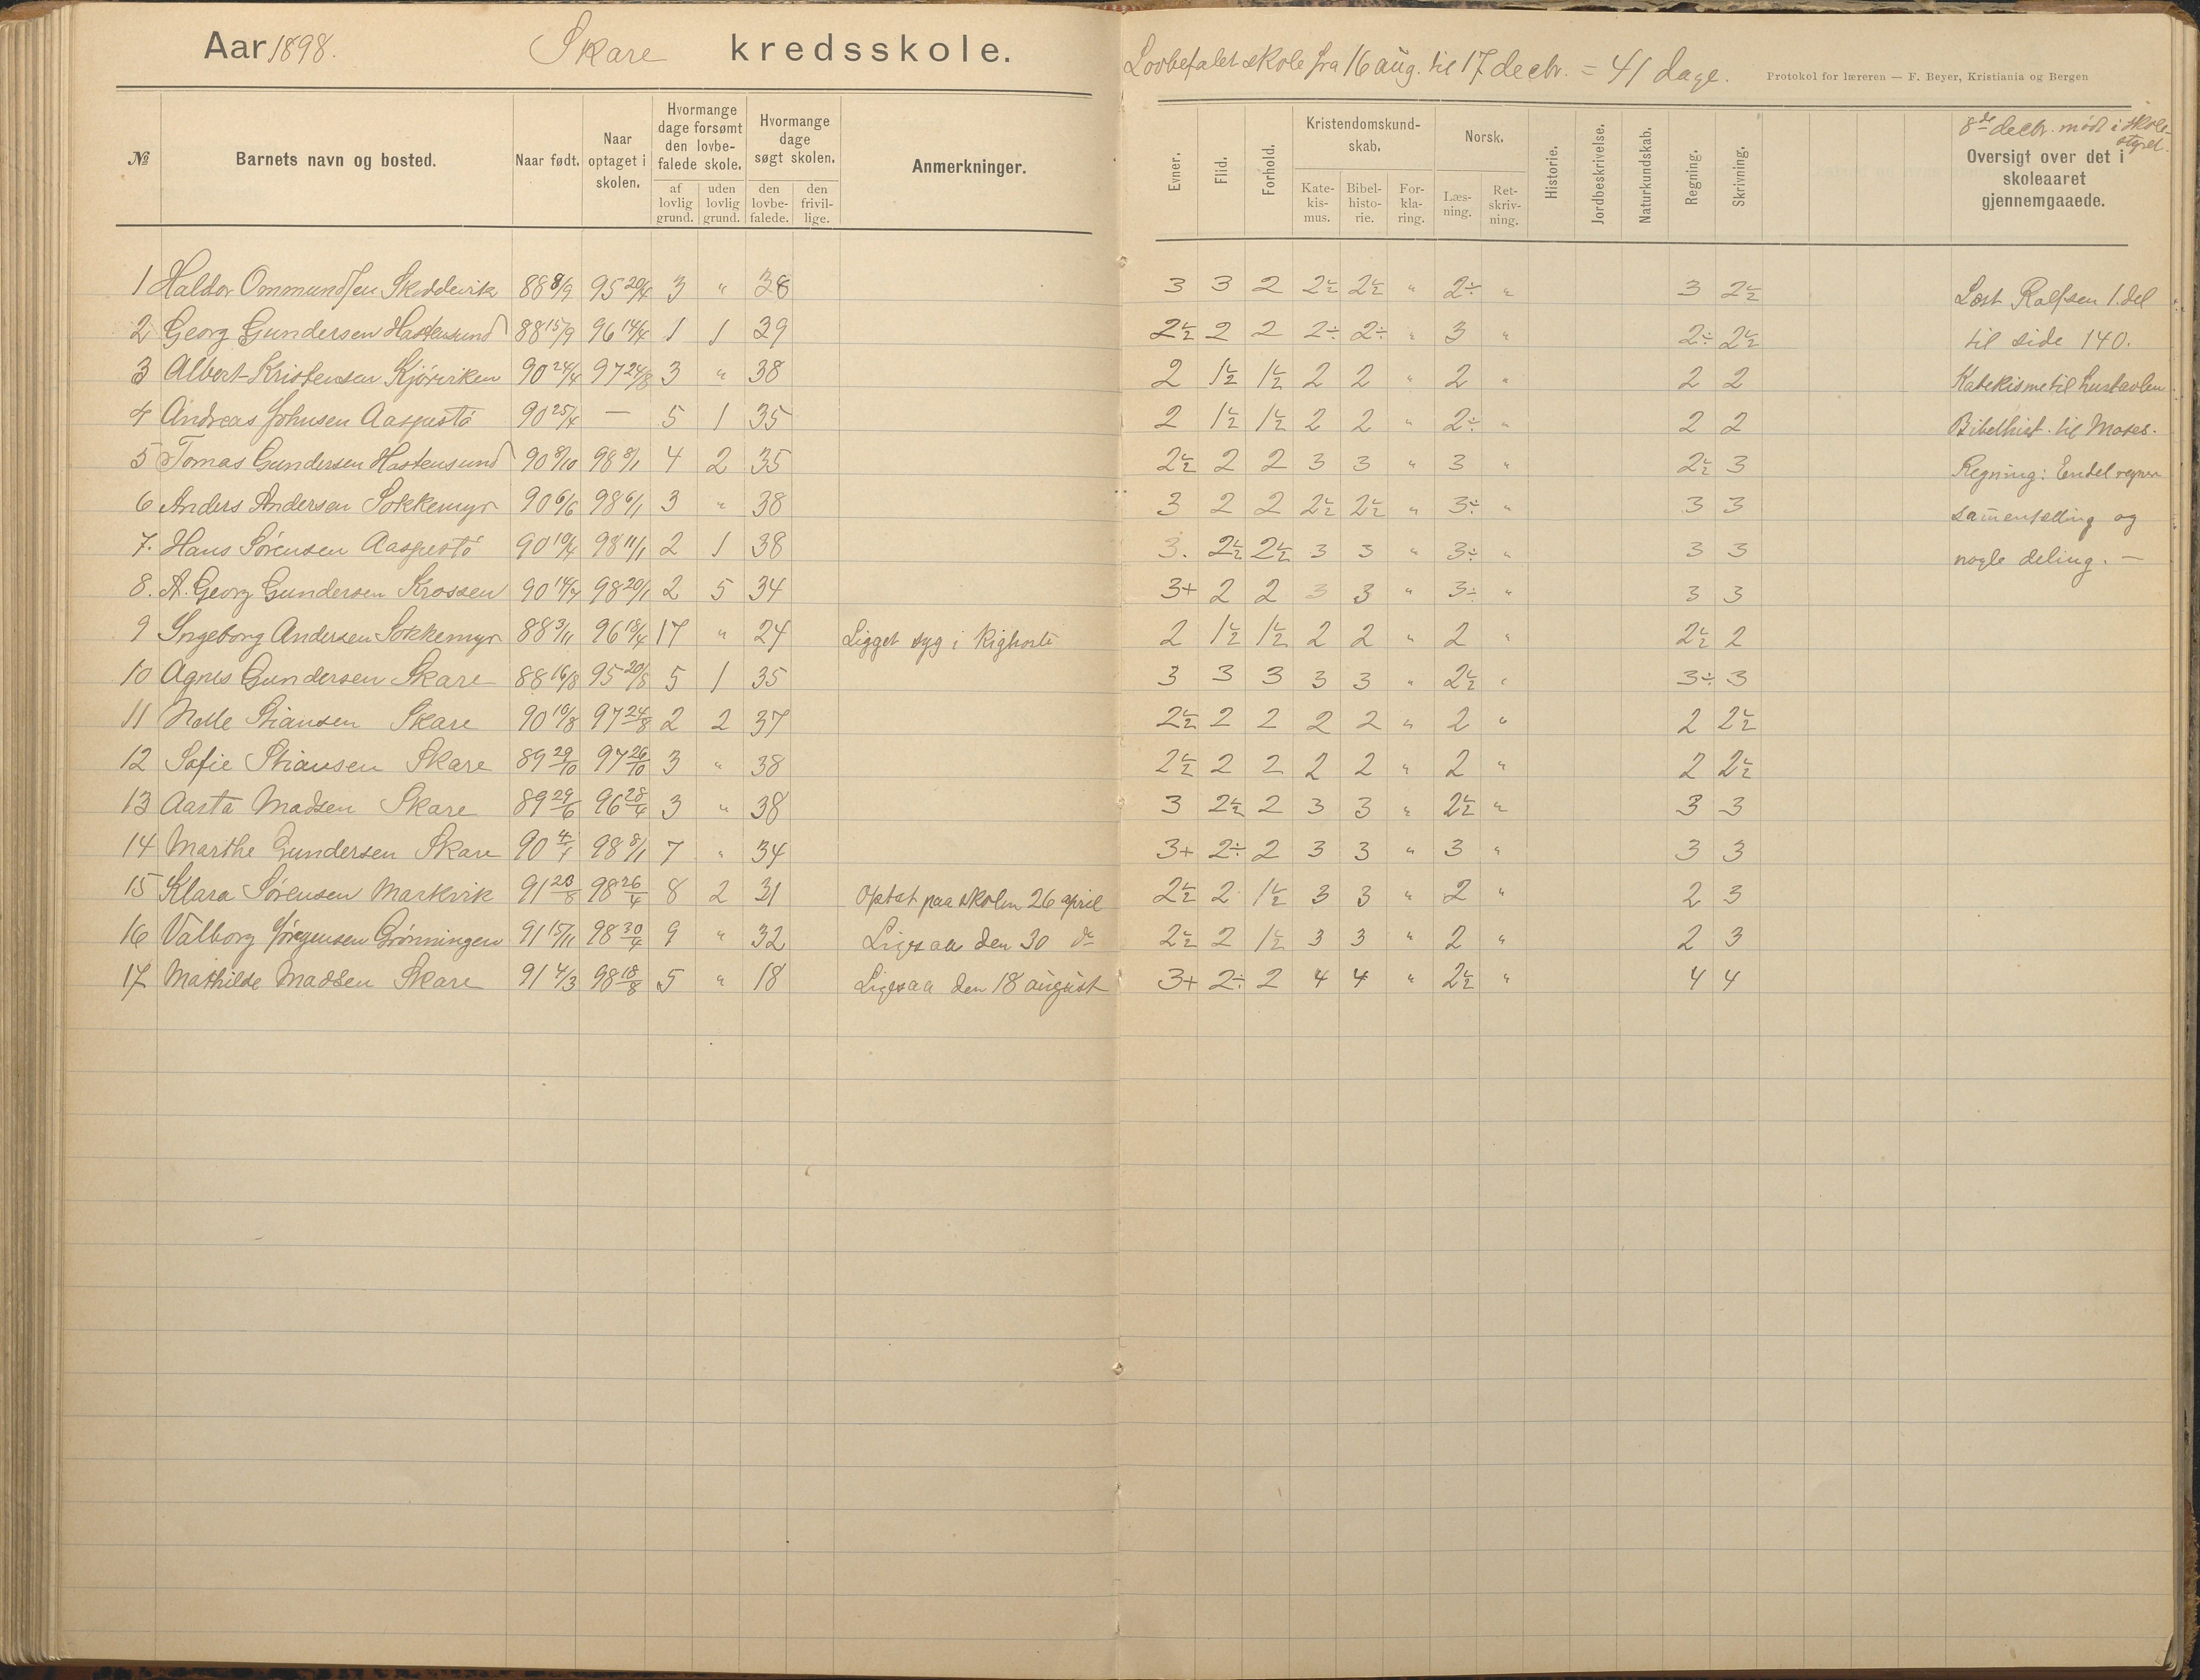 Aar 1898. Skare kredsskole.
Lovbefalet skole fra 16 aug. til 17 decbr. = 41 dage.
Protokol for læreren — F. Beyer, Kristiania og Bergen
8de decbr. mødt i skole-
styret.
№ Barnets navn og bosted. Naar født. Naar optaget i skolen. Hvormange dage forsømt den lovbe-falede skole. af lovlig grund. uden lovlig grund. Hvormange dage søgt skolen. den lovbe-falede. den frivil-lige. Anmerkninger.
Evner. Flid. Forhold. Kristendomskund-skab. Kate-kis-mus. Bibel-histo-rie. For-kla-ring. Norsk. Læs-ning. Ret-skriv-ning. Historie. Jordbeskrivelse. Naturkundskab. Regning. Skrivning. Oversigt over det i skoleaaret gjennemgaaede.
1 Haldor Ommundsen Skoddevik 88 8/9 95 20/4 3 " 38 3 3 2 2½ 2½ " 2÷ " 3 2½ Læst Rolfsen 1. del
2 Georg Gundersen Hastensund 88 15/9 96 14/4 1 1 39 2½ 2 2 2÷ 2÷ " 3 " 2÷ 2½ til side 140.
3 Albert Kristensen Kjørviken 90 24/4 97 24/8 3 " 38 2 1½ 1½ 2 2 " 2 " 2 2 Katekisme til hustavlen
4 Andreas Johnsen Aaspustø 90 25/4 — 5 1 35 2 1½ 1½ 2 2 " 2÷ " 2 2 Bibelhist. til Moses.
5 Tomas Gundersen Hastensund 90 8/10 98 8/1 4 2 35 2½ 2 2 3 3 " 3 " 2½ 3 Regning: Endel
6 Anders Andersen Sokkemyr 90 6/6 98 6/1 3 " 38 3 2 2 2½ 2½ " 3÷ " 3 3 sammentælling og
7. Hans Sørensen Aaspustø 90 10/4 98 11/1 2 1 38 3. 2½ 2½ 3 3 " 3÷ " 3 3 nogle deling. —
8. A. Georg Gundersen Krossen 90 14/7 98 20/1 2 5 34 3+ 2 2 3 3 " 3÷ " 3 3
9 Ingeborg Andersen Sokkemyr 88 3/11 96 18/4 17 " 24 Ligget syg i kighoste 2 1½ 1½ 2 2 " 2 " 2½ 2
10 Agnes Gundersen Skare 88 16/8 95 20/8 5 1 35 3 3 3 3 3 " 2½ " 3÷ 3
11 Stiansen Skare 90 10/8 97 24/8 2 2 37 2½ 2 2 2 2 " 2 " 2 2½
12 Sofie Stiansen Skare 89 29/10 97 26/10 3 " 38 2½ 2 2 2 2 " 2 " 2 2½
13 Aasta Madsen Skare 89 29/6 96 28/4 3 " 38 3 2½ 2 3 3 " 2½ " 3 3
14 Marthe Gundersen Skare 90 4/1 98 8/1 7 " 34 3+ 2÷ 2 3 3 " 3 " 3 3
15 Klara Sørensen Markvik 91 20/8 98 26/4 8 2 31 Optat paa skolen 26 april 2½ 2 1½ 3 3 " 2 " 2 3
16 Valborg Jørgensen Grønningen 91 15/11 98 30/4 9 " 32 Ligesaa den 30 do 2½ 2 1½ 3 3 " 2 " 2 3
17 Mathilde Madsen Skare 91 4/3 98 18/8 5 " 18 Ligesaa den 18 august 3+ 2÷ 2 4 4 " 2½ " 4 4